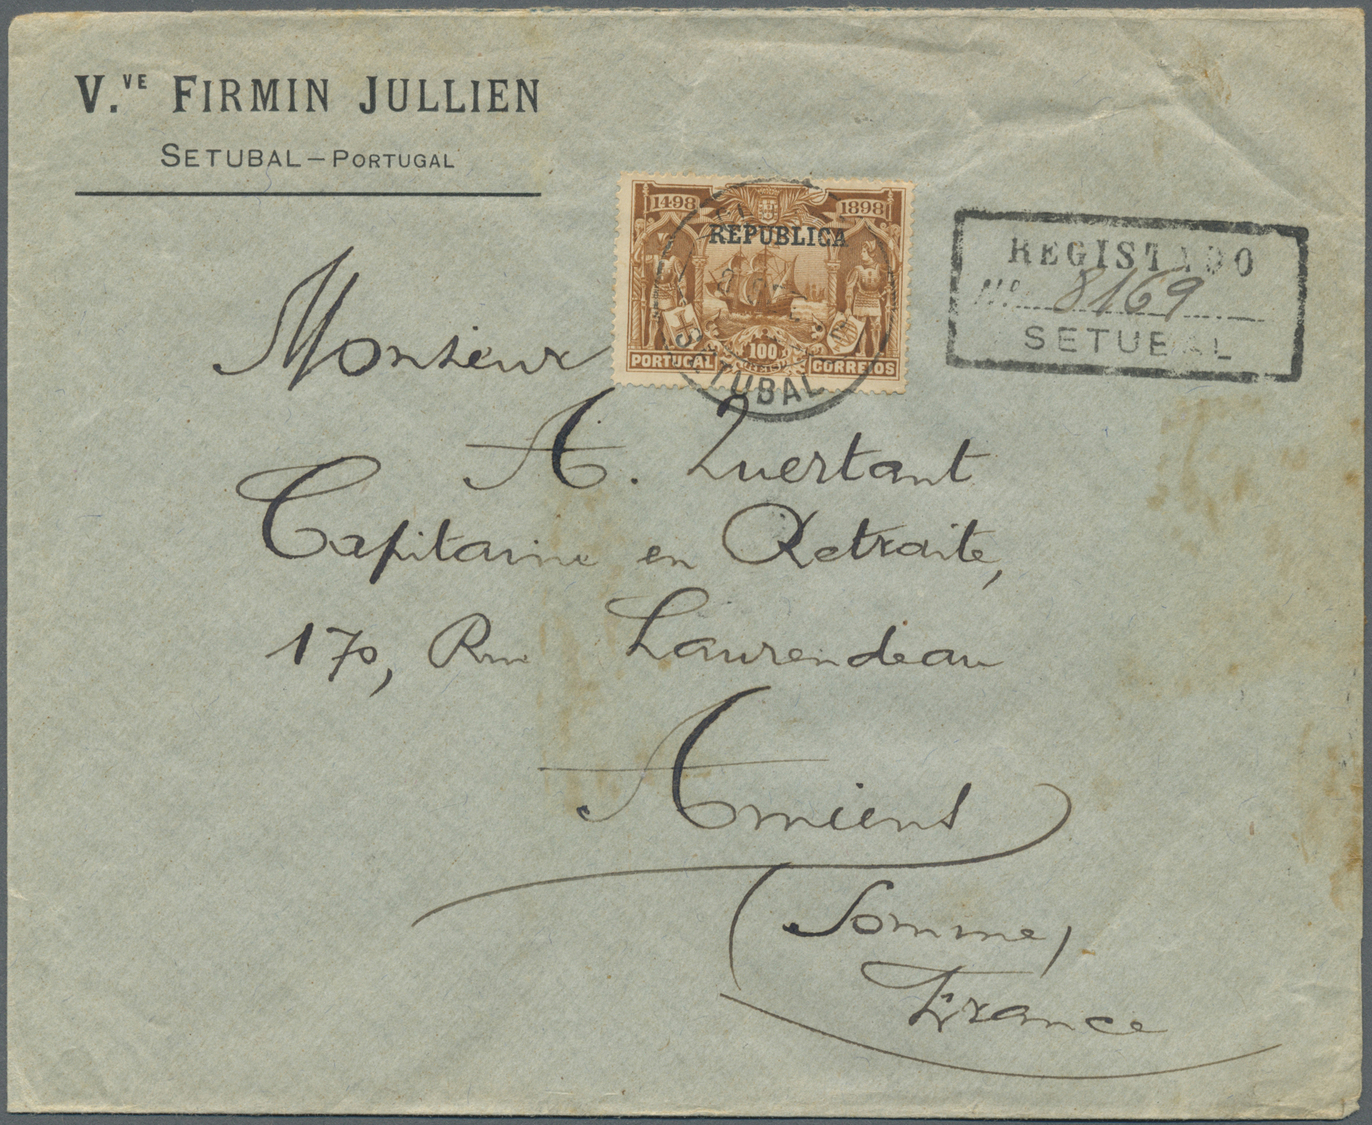 V.VE FIRMIN JULLIEN
SETUBAL – PORTUGAL
1498 1898
REPUBLICA
100
REIS
PORTUGAL CORREIOS
SETUBAL
REGISTADO
Nº 8169
SETUBAL
Monsieur
A. Luertant
Capitaine en Retraite,
170, Rue Laurendeau
Amiens
(Somme)
France